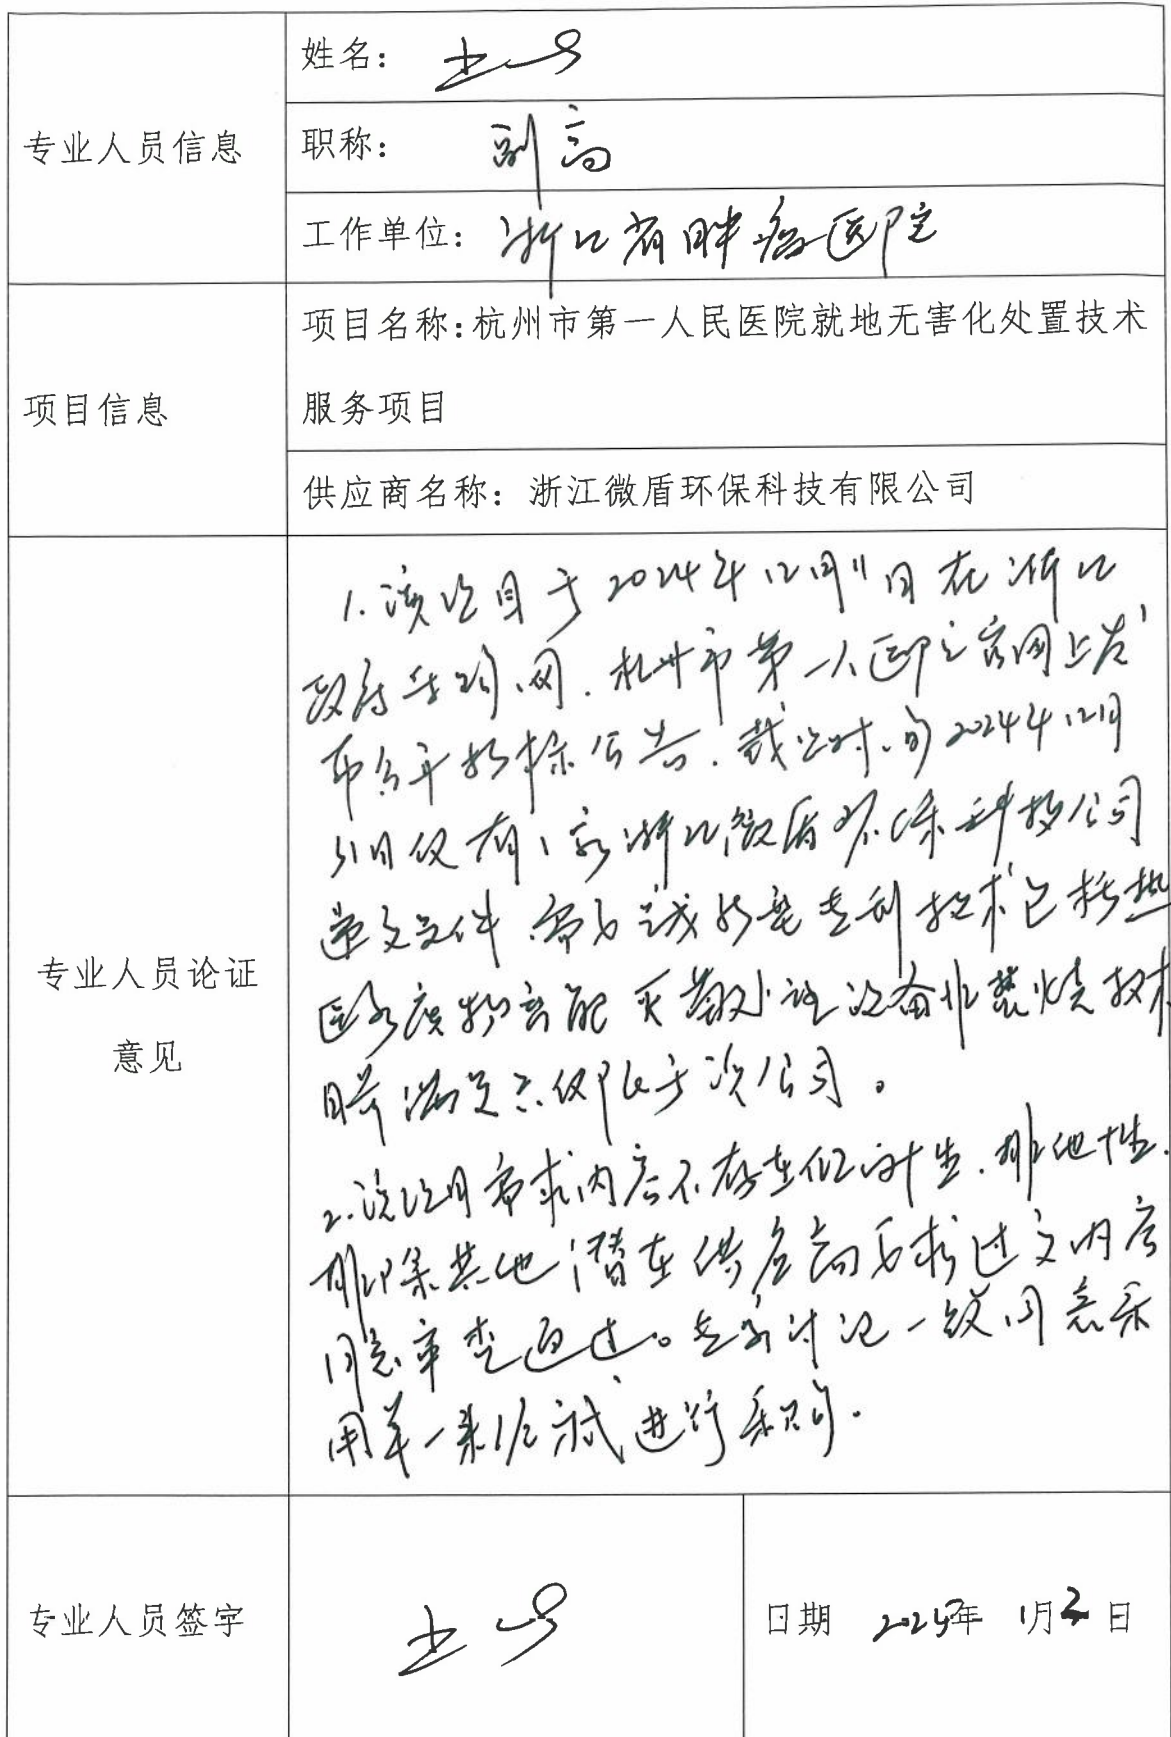 专业人员信息
姓名：
职称： 副高
工作单位： 浙江省肿瘤医院
项目信息
项目名称：杭州市第一人民医院就地无害化处置技术
服务项目
供应商名称：浙江微盾环保科技有限公司
专业人员论证
意见
1.该项目于2024年12月11日在浙江
政府采购网、杭州市第一人民医院官网上发
布公开招标公告、截止时间2024年12月
31日仅有1家浙江微盾环保科技公司
递交文件、 专利技术包括
医疗废物 灭菌处理设备非焚烧技术
目前满足 仅限于该公司。
2.该项目需求内容不存在倾向性、排他性、
排除其他潜在供应商 内容
同意审查通过。专家讨论一致同意采
用单一来源方式进行采购。
专业人员签字
日期 2025年 1月2日